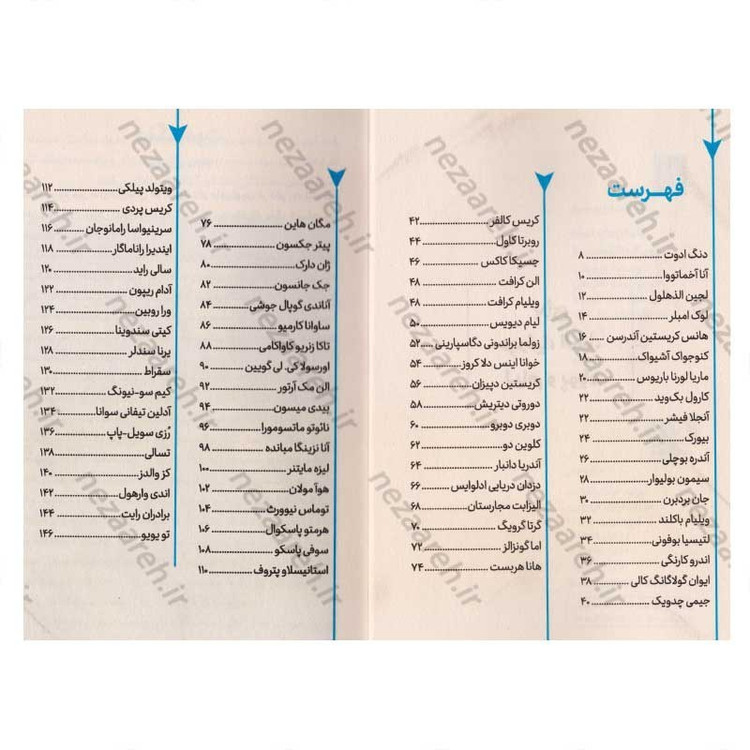 فهرست
دنگ ادوت ۸
آنا آخماتووا ۱۰
لجین الذهلول ۱۲
لوک امبلر ۱۴
هانس کریستین آندرسن ۱۶
کنوجواک آشیواک ۱۸
ماریا لورنا باریوس ۲۰
کارول بک‌وید ۲۲
آنجلا فیشر ۲۲
بیورک ۲۴
آندره بوچلی ۲۶
سیمون بولیوار ۲۸
جان بردبرن ۳۰
ویلیام باکلند ۳۲
لتیسیا بوفونی ۳۴
اندرو کارنگی ۳۶
ایوان گولاگانگ کالی ۳۸
جیمی چدویک ۴۰
کریس کالفر ۴۲
روبرتا کاول ۴۴
جسیکا کاکس ۴۶
الن کرافت ۴۸
ویلیام کرافت ۴۸
لیام دیویس ۵۰
زولما براندونی دگاسپارینی ۵۲
خوانا اینس دلا کروز ۵۴
کریستین دپیزان ۵۶
دوروتی دیتریش ۵۸
دوبری دوبرو ۶۰
کلوین دو ۶۲
آندریا دانبار ۶۴
دزدان دریایی ادلوایس ۶۶
الیزابت مجارستان ۶۸
گرتا گرویگ ۷۰
اما گونزالز ۷۲
هانا هربست ۷۴
مگان هاین ۷۶
پیتر جکسون ۷۸
ژان دارک ۸۰
جک جانسون ۸۲
آناندی گوپال جوشی ۸۴
ساوانا کارمیو ۸۶
تاکا زنریو کاواکامی ۸۸
اورسولا کی. لی گویین ۹۰
الن مک آرتور ۹۲
بیدی میسون ۹۴
نائوتو ماتسومورا ۹۶
آنا نزینگا مبانده ۹۸
لیزه مایتنر ۱۰۰
هوآ مولان ۱۰۲
توماس نیوورث ۱۰۴
هرمتو پاسکوال ۱۰۶
سوفی پاسکو ۱۰۸
استانیسلاو پتروف ۱۱۰
ویتولد پیلکی ۱۱۲
کریس پردی ۱۱۴
سرینیواسا رامانوجان ۱۱۶
ایندیرا راناماگار ۱۱۸
سالی راید ۱۲۰
آدام ریپون ۱۲۲
ورا روبین ۱۲۴
کیتی سندوینا ۱۲۶
برنا سندلر ۱۲۸
سقراط ۱۳۰
کیم سو-نیونگ ۱۳۲
آدلین تیفانی سوانا ۱۳۴
رُزی سویل-پاپ ۱۳۶
تسالی ۱۳۸
کز والدز ۱۴۰
اندی وارهول ۱۴۲
برادران رایت ۱۴۴
تو یویو ۱۴۶
nezaareh.ir